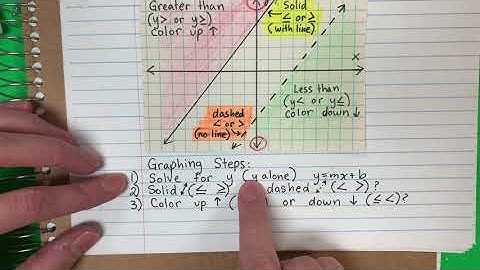 Greater than
(y> or y≥)
Color up ↑
Solid
≤ or ≥
(with line)
x
Less than
(y< or y≤)
Color down ↓
dashed
< or >
(no line)
Graphing Steps:
1) Solve for y (y alone) y=mx+b
2) Solid (≤ ≥) dashed (< >)?
3) Color up ↑ ( ) or down ↓ (≤ <)?